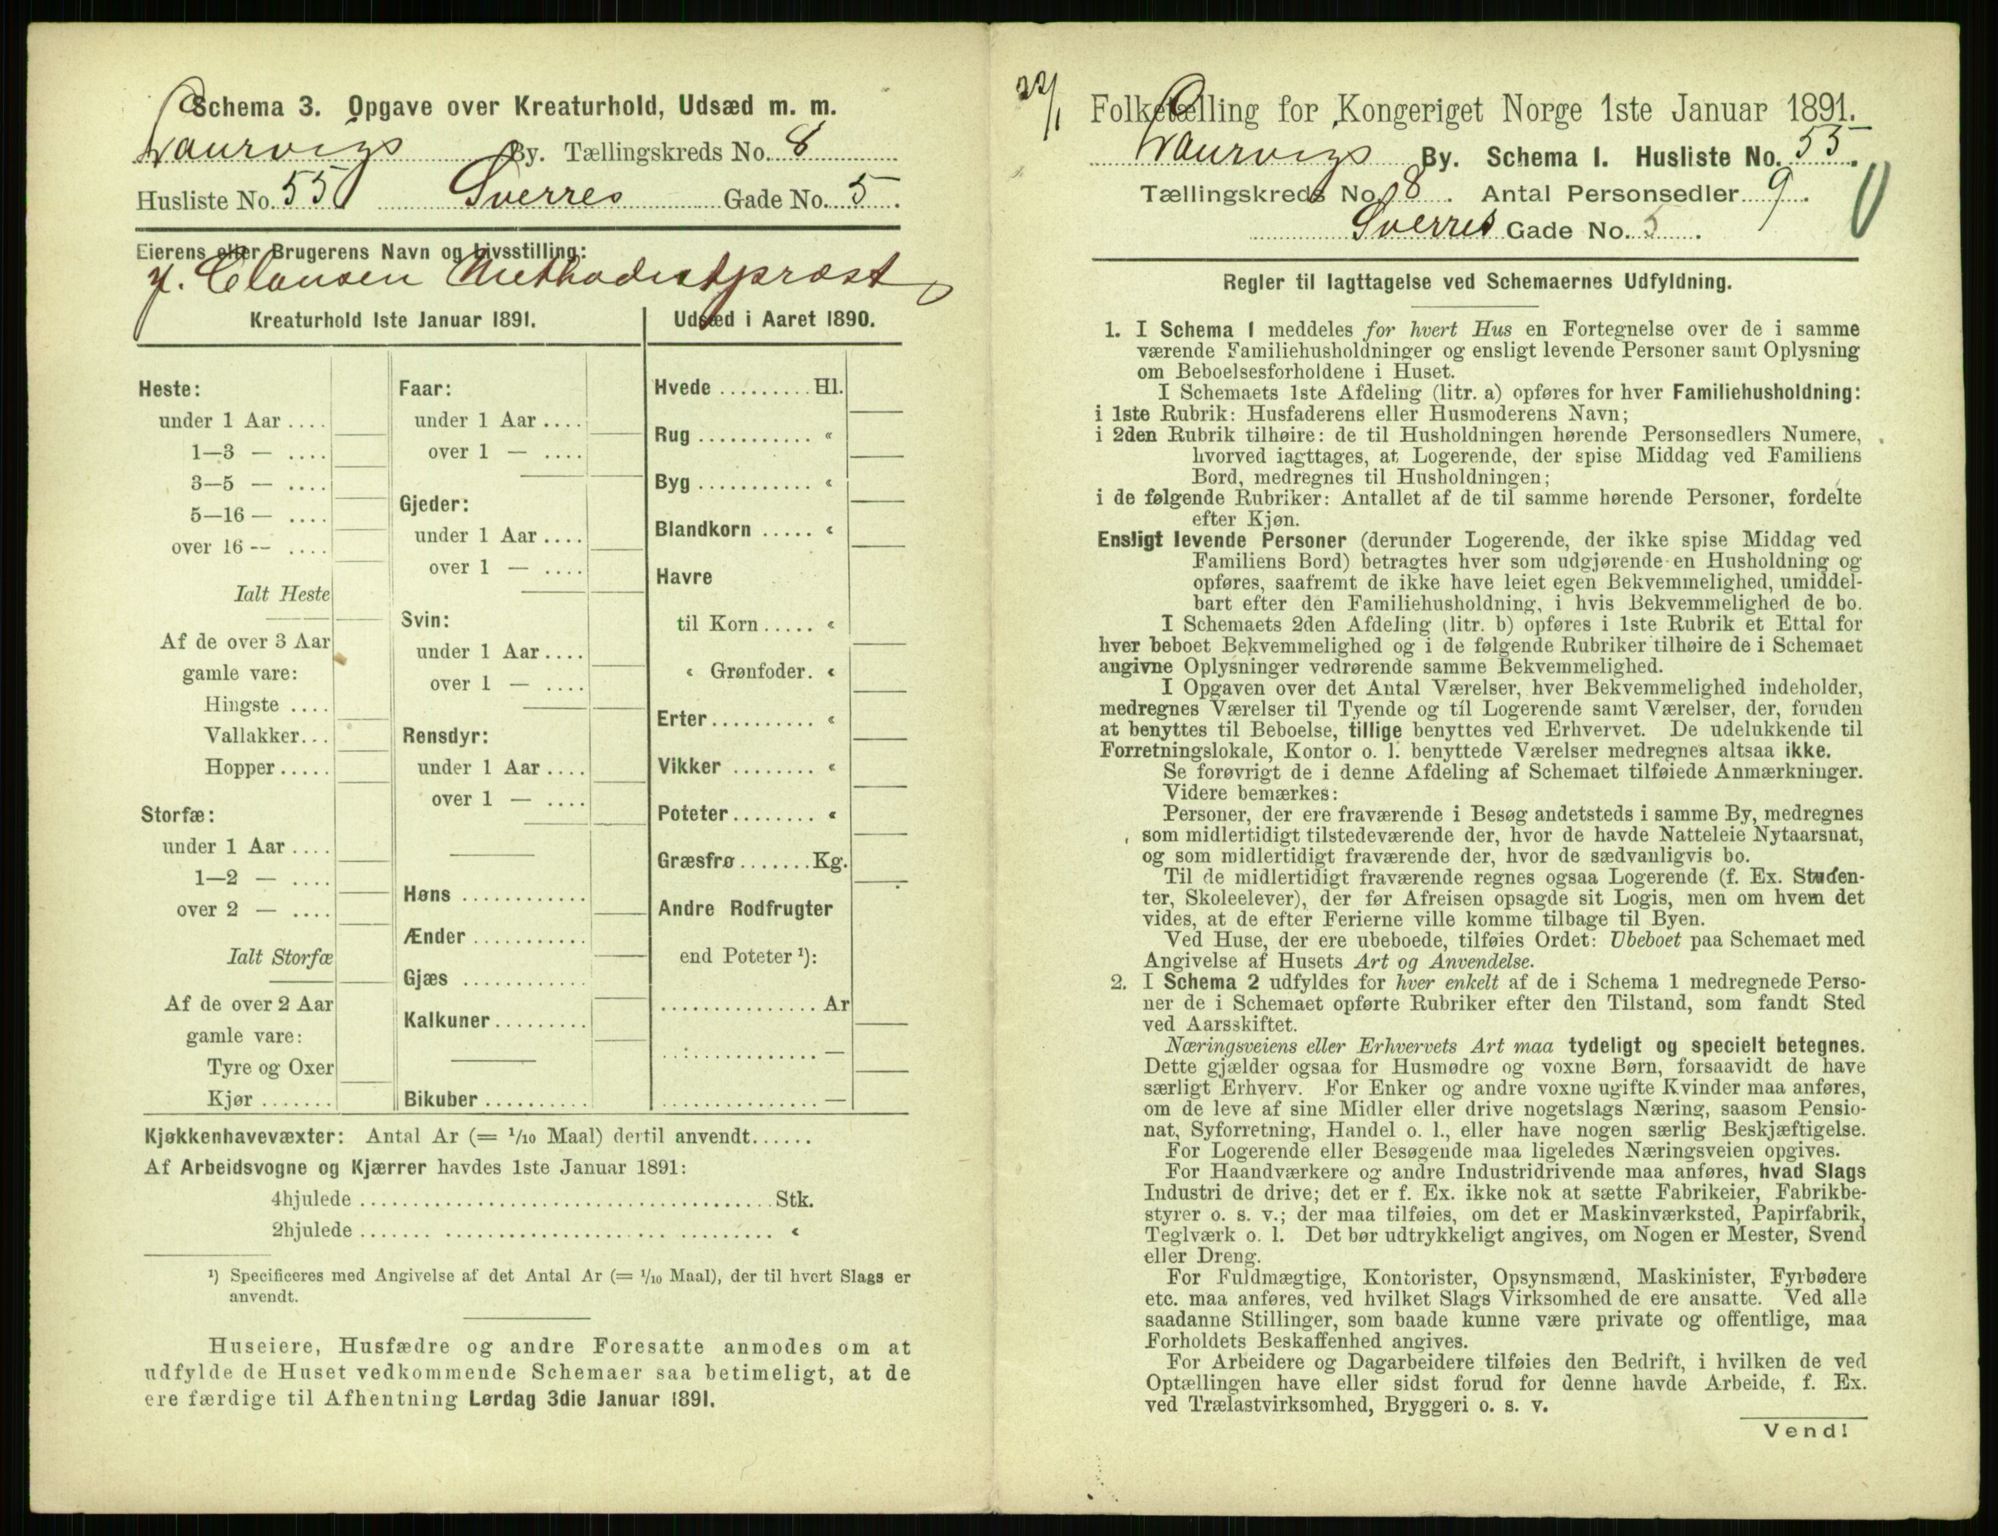 Schema 3. Opgave over Kreaturhold, Udsæd m. m.
Laurvigs By. Tællingskreds No. 8
Husliste No. 55 Sverres Gade No. 5.
Eierens eller Brugerens Navn og Livsstilling:
J. Clausen Methodistpræst
Kreaturhold 1ste Januar 1891.
Heste:
under 1 Aar ....
1—3 — ....
3—5 — ....
5—16 — ....
over 16 — ....
Ialt Heste
Af de over 3 Aar
gamle vare:
Hingste ....
Vallakker...
Hopper.....
Storfæ:
under 1 Aar ....
1—2 — ....
over 2 — ....
Ialt Storfæ
Af de over 2 Aar
gamle vare:
Tyre og Oxer
Kjør .......
Faar:
under 1 Aar ....
over 1 — ....
Gjeder:
under 1 Aar ....
over 1 — ....
Svin:
under 1 Aar ....
over 1 — ....
Rensdyr:
under 1 Aar ....
over 1 — ....
Høns ............
Ænder ...........
Gjæs ............
Kalkuner.........
Bikuber ..........
Udsæd i Aaret 1890.
Hvede ......... Hl.
Rug ........... «
Byg ........... «
Blandkorn ..... «
Havre
til Korn ..... «
« Grønfoder. «
Erter.......... «
Vikker ........ «
Poteter ........ «
Græsfrø ....... Kg.
Andre Rodfrugter
end Poteter ¹):
............... Ar
............... —
............... —
Kjøkkenhavevæxter: Antal Ar (= 1/10 Maal) dertil anvendt......
Af Arbeidsvogne og Kjærrer havdes 1ste Januar 1891:
4hjulede ........................................ Stk.
2hjulede ........................................ «
¹) Specificeres med Angivelse af det Antal Ar (= 1/10 Maal), der til hvert Slags er
anvendt.
Huseiere, Husfædre og andre Foresatte anmodes om at
udfylde de Huset vedkommende Schemaer saa betimeligt, at de
ere færdige til Afhentning Lørdag 3die Januar 1891.
22/1
Folketælling for Kongeriget Norge 1ste Januar 1891.
Laurvigs By. Schema 1. Husliste No. 55.
Tællingskreds No. 8. Antal Personsedler 9.
Sverres Gade No. 5.
Regler til Iagttagelse ved Schemaernes Udfyldning.
1. I Schema 1 meddeles for hvert Hus en Fortegnelse over de i samme
værende Familiehusholdninger og ensligt levende Personer samt Oplysning
om Beboelsesforholdene i Huset.
I Schemaets 1ste Afdeling (litr. a) opføres for hver Familiehusholdning:
i 1ste Rubrik: Husfaderens eller Husmoderens Navn;
i 2den Rubrik tilhøire: de til Husholdningen hørende Personsedlers Numere,
hvorved iagttages, at Logerende, der spise Middag ved Familiens
Bord, medregnes til Husholdningen;
i de følgende Rubriker: Antallet af de til samme hørende Personer, fordelte
efter Kjøn.
Ensligt levende Personer (derunder Logerende, der ikke spise Middag ved
Familiens Bord) betragtes hver som udgjørende en Husholdning og
opføres, saafremt de ikke have leiet egen Bekvemmelighed, umiddel-
bart efter den Familiehusholdning, i hvis Bekvemmelighed de bo.
I Schemaets 2den Afdeling (litr. b) opføres i 1ste Rubrik et Ettal for
hver beboet Bekvemmelighed og i de følgende Rubriker tilhøire de i Schemaet
angivne Oplysninger vedrørende samme Bekvemmelighed.
I Opgaven over det Antal Værelser, hver Bekvemmelighed indeholder,
medregnes Værelser til Tyende og til Logerende samt Værelser, der, foruden
at benyttes til Beboelse, tillige benyttes ved Erhvervet. De udelukkende til
Forretningslokale, Kontor o. l. benyttede Værelser medregnes altsaa ikke.
Se forøvrigt de i denne Afdeling af Schemaet tilføiede Anmærkninger.
Videre bemærkes:
Personer, der ere fraværende i Besøg andetsteds i samme By, medregnes
som midlertidigt tilstedeværende der, hvor de havde Natteleie Nytaarsnat,
og som midlertidigt fraværende der, hvor de sædvanligvis bo.
Til de midlertidigt fraværende regnes ogsaa Logerende (f. Ex. Studen-
ter, Skoleelever), der før Afreisen opsagde sit Logis, men om hvem det
vides, at de efter Ferierne ville komme tilbage til Byen.
Ved Huse, der ere ubeboede, tilføies Ordet: Ubeboet paa Schemaet med
Angivelse af Husets Art og Anvendelse.
2. I Schema 2 udfyldes for hver enkelt af de i Schema 1 medregnede Perso-
ner de i Schemaet opførte Rubriker efter den Tilstand, som fandt Sted
ved Aarsskiftet.
Næringsveiens eller Erhvervets Art maa tydeligt og specielt betegnes.
Dette gjælder ogsaa for Husmødre og voxne Børn, forsaavidt de have
særligt Erhverv. For Enker og andre voxne ugifte Kvinder maa anføres,
om de leve af sine Midler eller drive nogetslags Næring, saasom Pensio-
nat, Syforretning, Handel o. l., eller have nogen særlig Beskjæftigelse.
For Logerende eller Besøgende maa ligeledes Næringsveien opgives.
For Haandværkere og andre Industridrivende maa anføres, hvad Slags
Industri de drive; det er f. Ex. ikke nok at sætte Fabrikeier, Fabrikbe-
styrer o. s. v.; der maa tilføies, om det er Maskinværksted, Papirfabrik,
Teglværk o. l. Det bør udtrykkeligt angives, om Nogen er Mester, Svend
eller Dreng.
For Fuldmægtige, Kontorister, Opsynsmænd, Maskinister, Fyrbødere
etc. maa anføres, ved hvilket Slags Virksomhed de ere ansatte. Ved alle
saadanne Stillinger, som baade kunne være private og offentlige, maa
Forholdets Beskaffenhed angives.
For Arbeidere og Dagarbeidere tilføies den Bedrift, i hvilken de ved
Optællingen have eller sidst forud for denne havde Arbeide, f. Ex.
ved Trælastvirksomhed, Bryggeri o. s. v.
Vend!